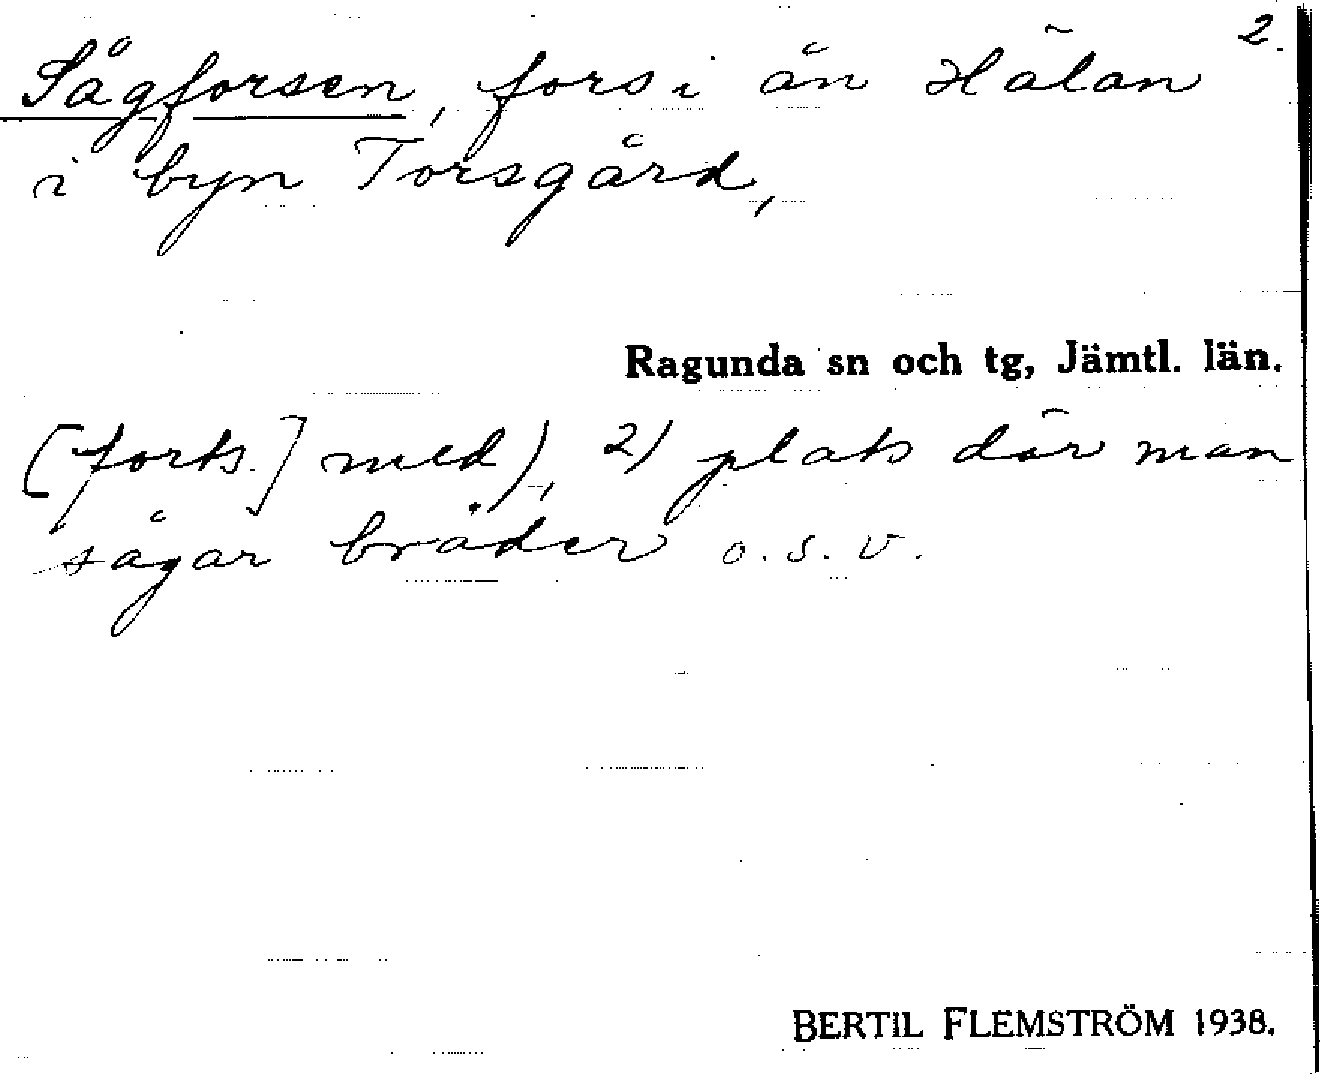 2.
Sågforsen, fors i ån Hälan
i byn Torsgård,
Ragunda sn och tg, Jämtl. län.
[forts.] med), 2) plats där man
sågar bräder o.s.v.
BERTIL FLEMSTRÖM 1938.